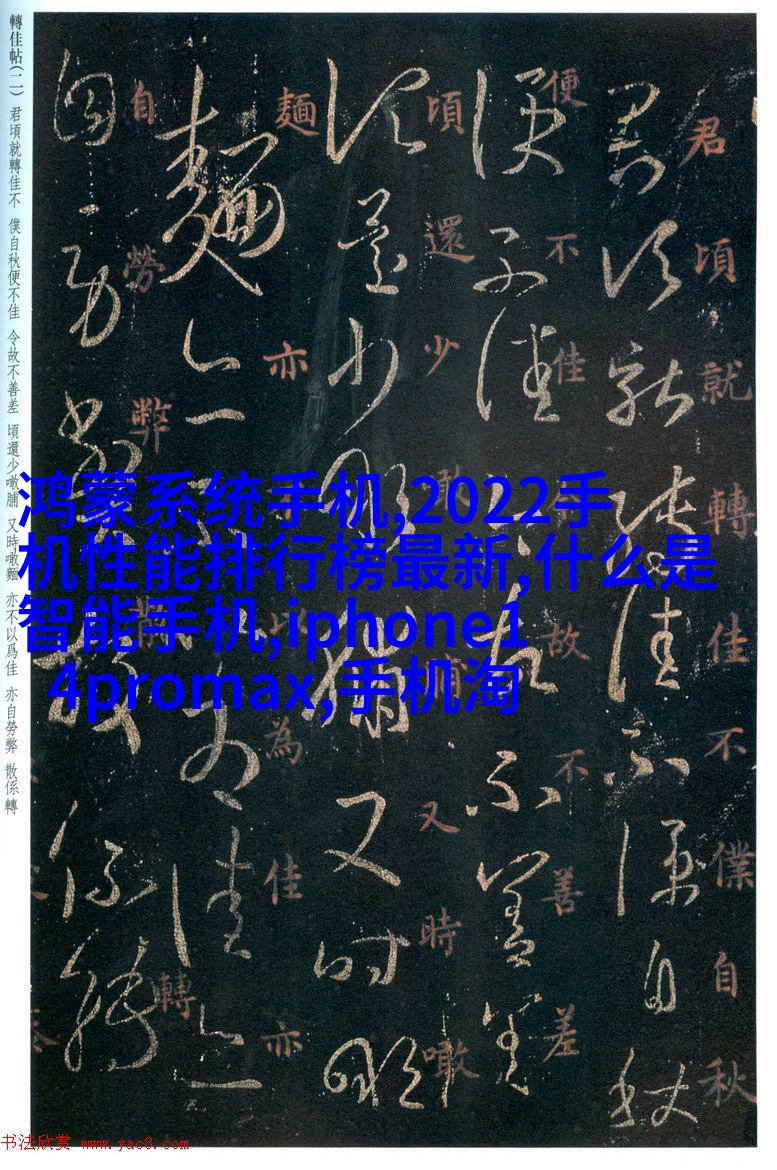 轉佳帖(二) 君頃就轉佳不 僕自秋便不佳 今故不善差 頃還少噉脯 又時噉麵 亦不以爲佳 亦自勞弊 散係轉
君頃就轉佳不僕自秋
便不佳今故不善差
頃還少噉脯又時噉
麵亦不以為佳亦
自勞弊散係轉
鸿蒙系统手机,2022手
机性能排行榜最新,什么是
智能手机,iphone1
4promax,手机淘
书法欣赏 www.yac8.com